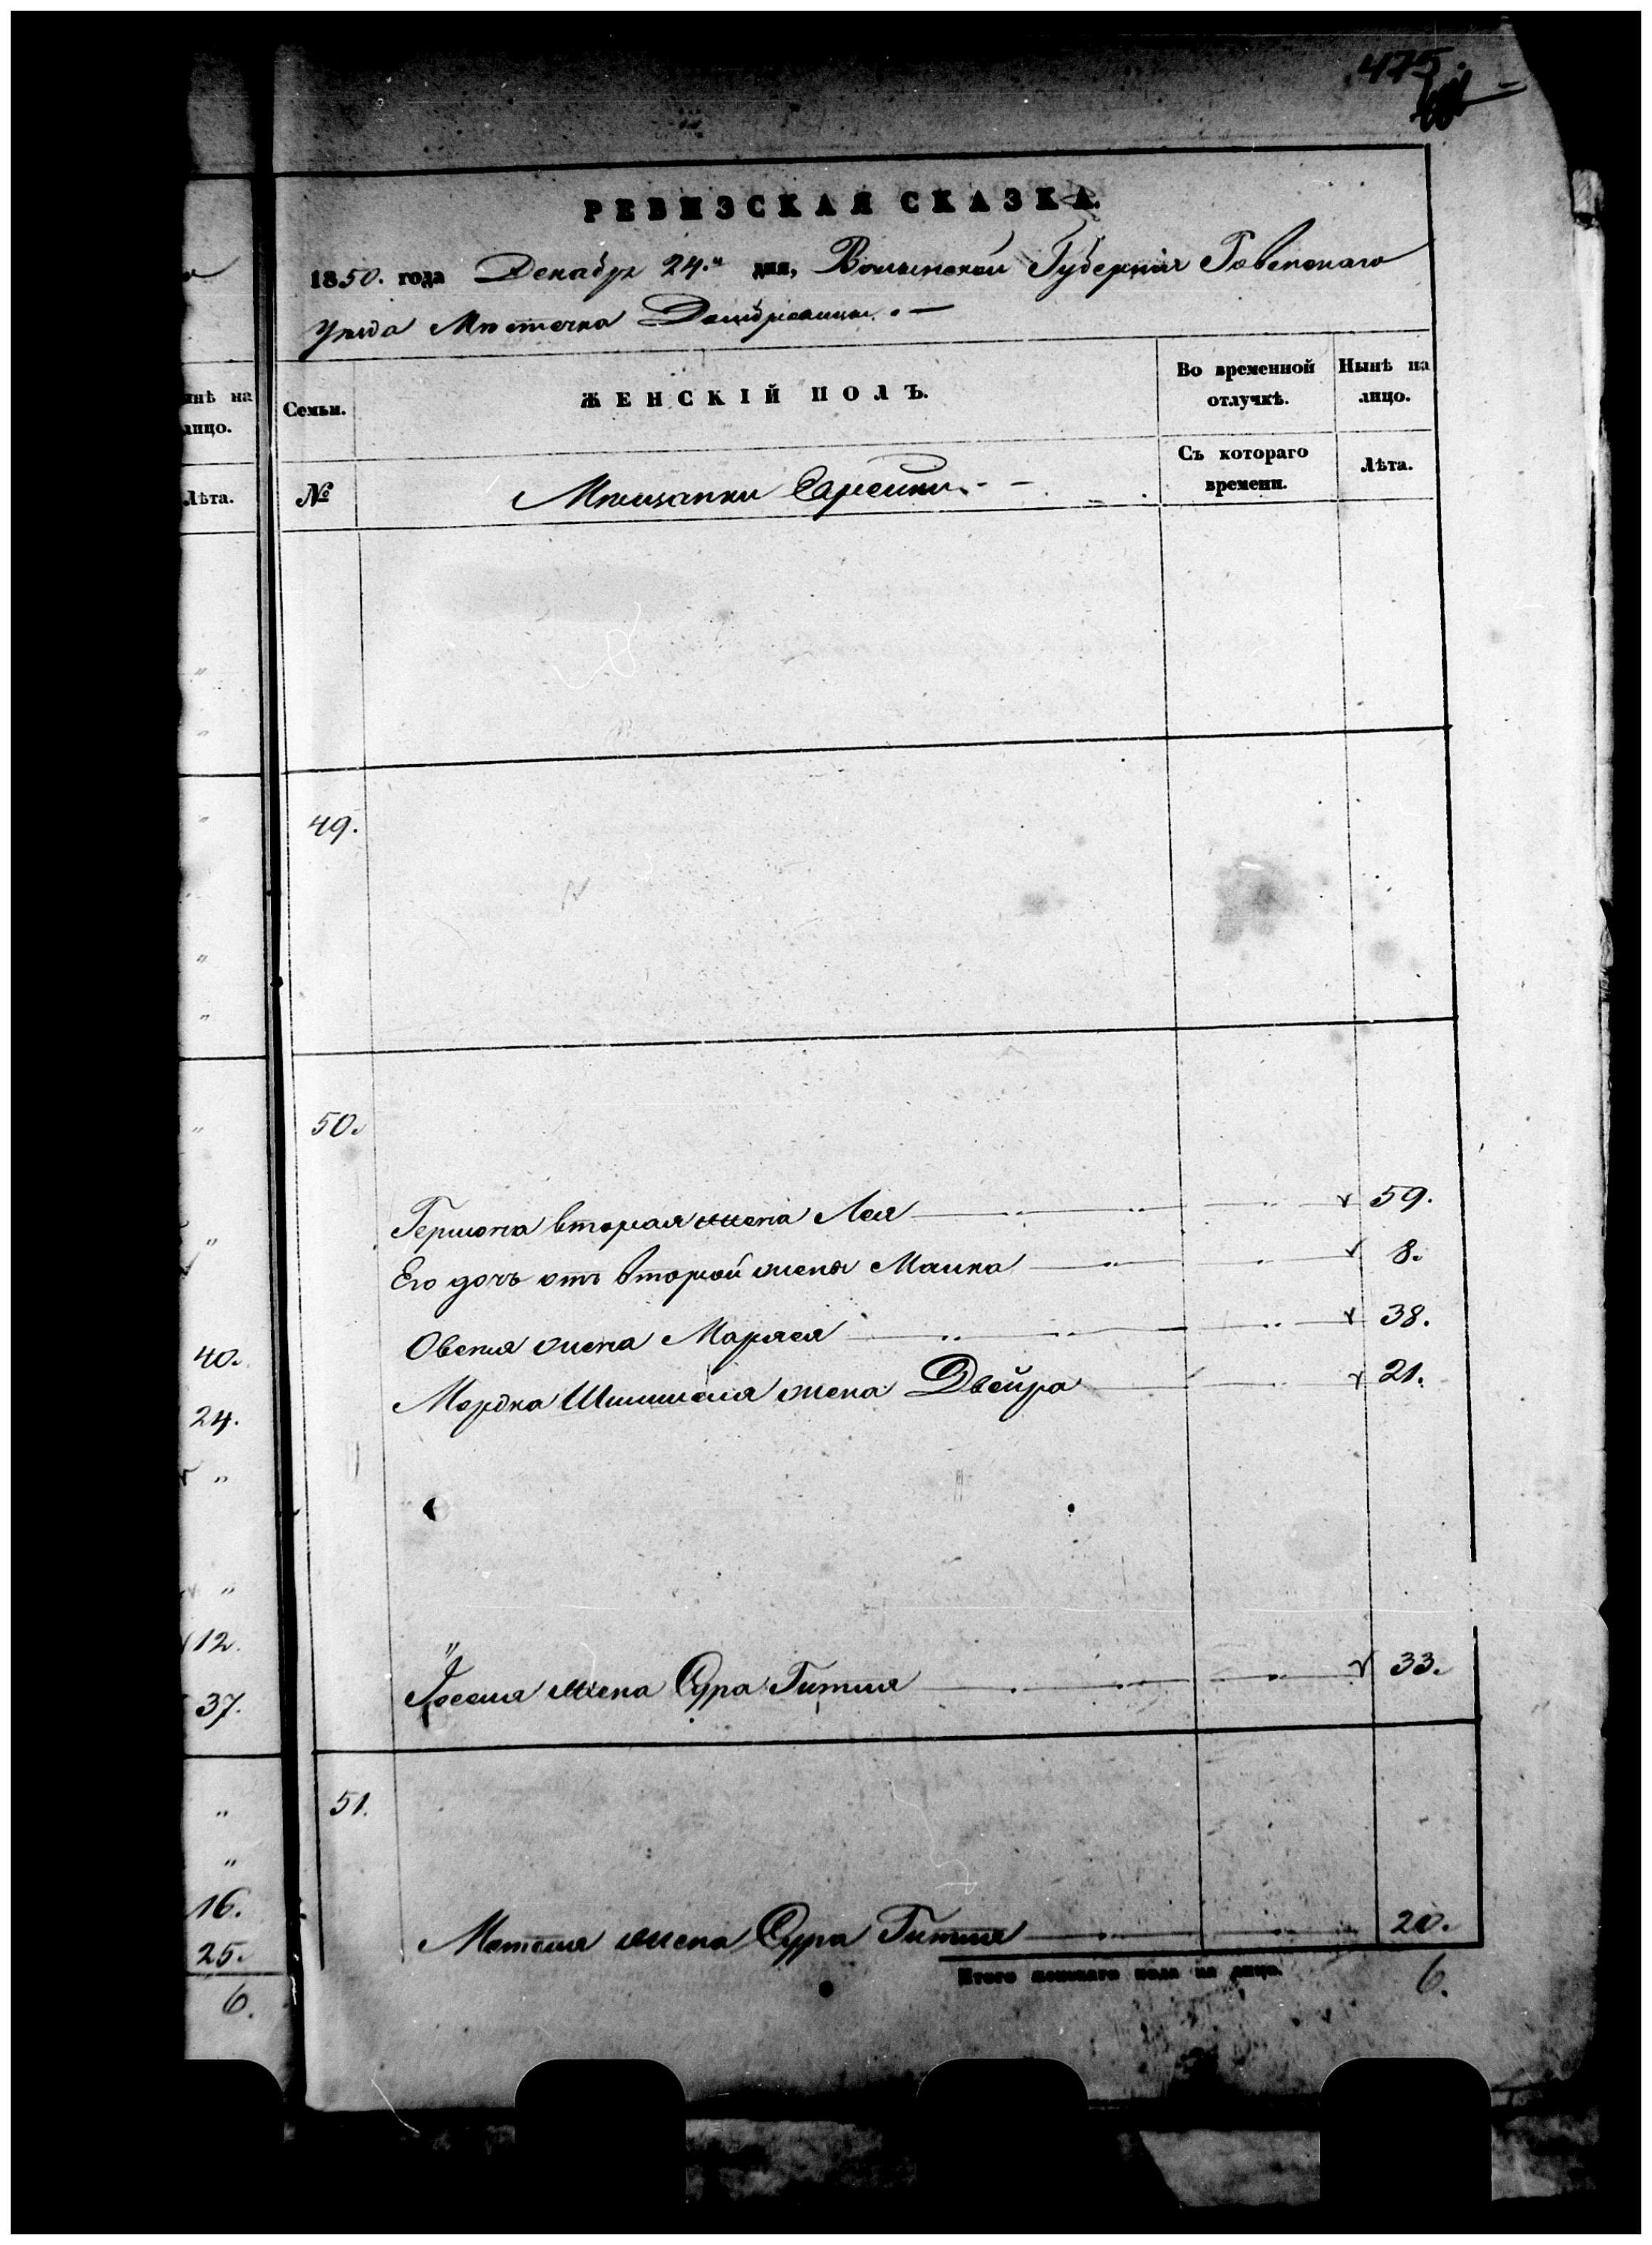 475.
РЕВИЗСКАЯ СКАЗКА.
1850. года Декабря 24.го дня, Волынской Губерніи Ровенскаго
Уѣзда Мѣстечка Домбровицы. —
Семьи.
ЖЕНСКІЙ ПОЛЪ.
Во временной отлучкѣ.
Нынѣ на лицо.
№
Мѣщанки Еврейки. - -
Съ котораго времени.
Лѣта.
49.
50.
Гершона вторая жена Лея 59.
Его дочь отъ второй жены Малка 8.
Овсея жена Маряся 38.
Мордка Шмишеля жена Двейра 21.
Іоселя жена Сура Гитля 33.
51.
Мотеля жена Сура Гитля 20.
Итого женскаго пола на лицо. 6.
нѣ на
лицо.
Лѣта.
40.
24.
12.
37.
16.
25.
6.